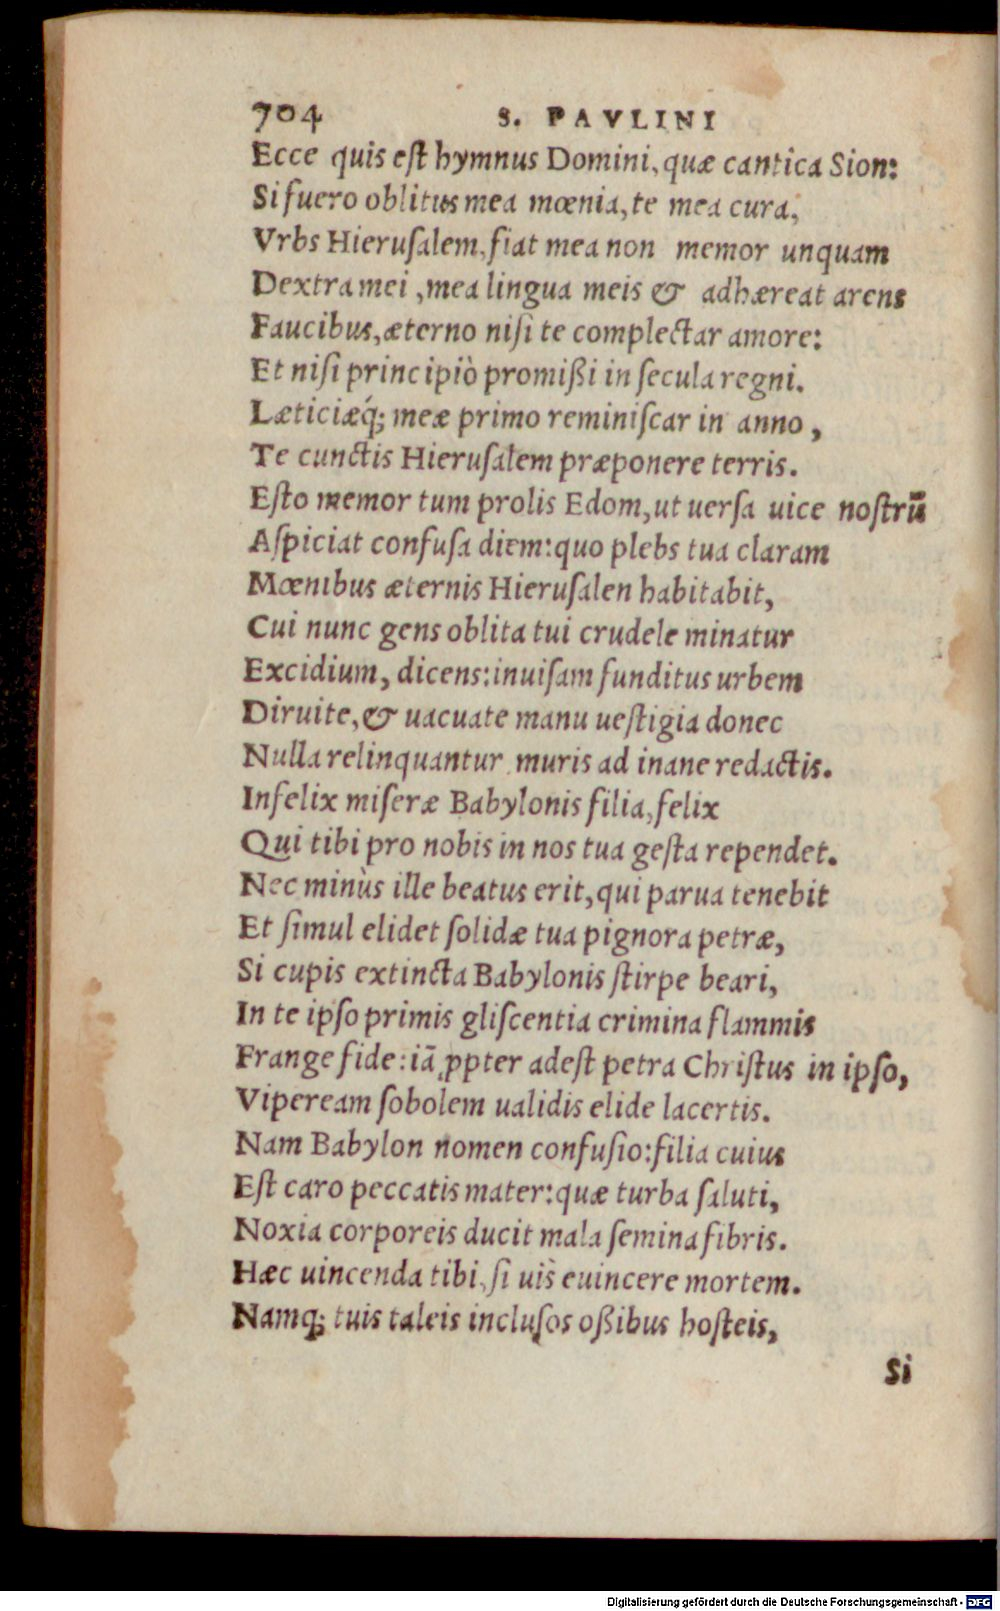 704 S. PAVLINI
Ecce quis eſt hymnus Domini, quæ cantica Sion:
Si fuero oblitus mea mœnia, te mea cura,
Vrbs Hieruſalem, fiat mea non memor unquam
Dextra mei, mea lingua meis & adhæreat arens
Faucibus, æterno niſi te complectar amore:
Et niſi principiò promißi in ſecula regni.
Læticiæq́; meæ primo reminiſcar in anno,
Te cunctis Hieruſalem præponere terris.
Eſto memor tum prolis Edom, ut uerſa uice noſtrū
Aſpiciat confuſa diem: quo plebs tua claram
Mœnibus æternis Hieruſalen habitabit,
Cui nunc gens oblita tui crudele minatur
Excidium, dicens: inuiſam funditus urbem
Diruite, & uacuate manu ueſtigia donec
Nulla relinquantur muris ad inane redactis.
Infelix miſeræ Babylonis filia, felix
Qui tibi pro nobis in nos tua geſta rependet.
Nec minùs ille beatus erit, qui parua tenebit
Et ſimul elidet ſolidæ tua pignora petræ,
Si cupis extincta Babylonis ſtirpe beari,
In te ipſo primis gliſcentia crimina flammis
Frange fide: iā ꝓpter adeſt petra Chriſtus in ipſo,
Vipeream ſobolem ualidis elide lacertis.
Nam Babylon nomen confuſio: filia cuius
Eſt caro peccatis mater: quæ turba ſaluti,
Noxia corporeis ducit mala ſemina fibris.
Hæc uincenda tibi, ſi uis euincere mortem.
Namq; tuis taleis incluſos oßibus hoſteis,
Si
Digitalisierung gefördert durch die Deutsche Forschungsgemeinschaft - DFG